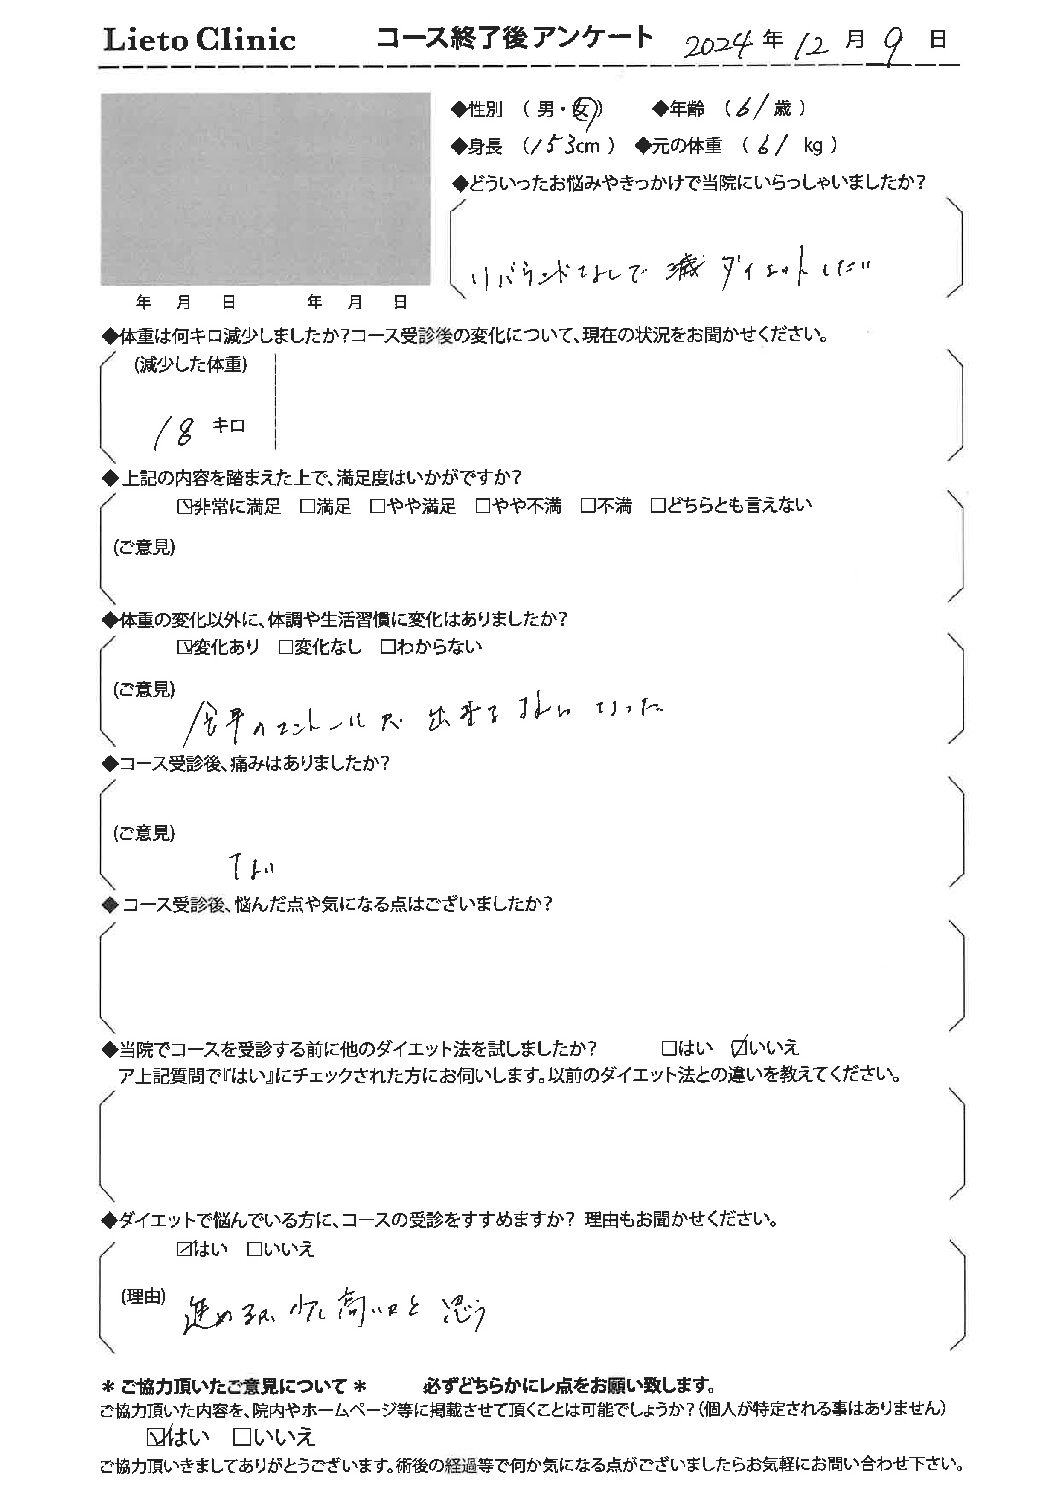 Lieto Clinic コース終了後アンケート 2024年 12月 9日
◆性別 （ 男・女 ） ◆年齢 （ 61歳 ）
◆身長 （ 153cm ） ◆元の体重 （ 61 kg ）
◆どういったお悩みやきっかけで当院にいらっしゃいましたか？
リバウンドなしで ダイエットしたい
年 月 日 年 月 日
◆体重は何キロ減少しましたか？コース受診後の変化について、現在の状況をお聞かせください。
(減少した体重)
18 キロ
◆ 上記の内容を踏まえた上で、満足度はいかがですか？
☑非常に満足 □満足 □やや満足 □やや不満 □不満 □どちらとも言えない
(ご意見)
◆体重の変化以外に、体調や生活習慣に変化はありましたか？
☑変化あり □変化なし □わからない
(ご意見)
のコントロールが 出来る なった
◆コース受診後、痛みはありましたか？
(ご意見)
ない
◆ コース受診後、悩んだ点や気になる点はございましたか？
◆当院でコースを受診する前に他のダイエット法を試しましたか？ □はい ☑いいえ
ア上記質問で『はい』にチェックされた方にお伺いします。以前のダイエット法との違いを教えてください。
◆ダイエットで悩んでいる方に、コースの受診をすすめますか？ 理由もお聞かせください。
☑はい □いいえ
(理由)
進めるが 少し高いかと 思う
＊ ご協力頂いたご意見について ＊ 必ずどちらかにレ点をお願い致します。
ご協力頂いた内容を、院内やホームページ等に掲載させて頂くことは可能でしょうか？（個人が特定される事はありません）
☑はい □いいえ
ご協力頂いきましてありがとうございます。術後の経過等で何か気になる点がございましたらお気軽にお問い合わせ下さい。